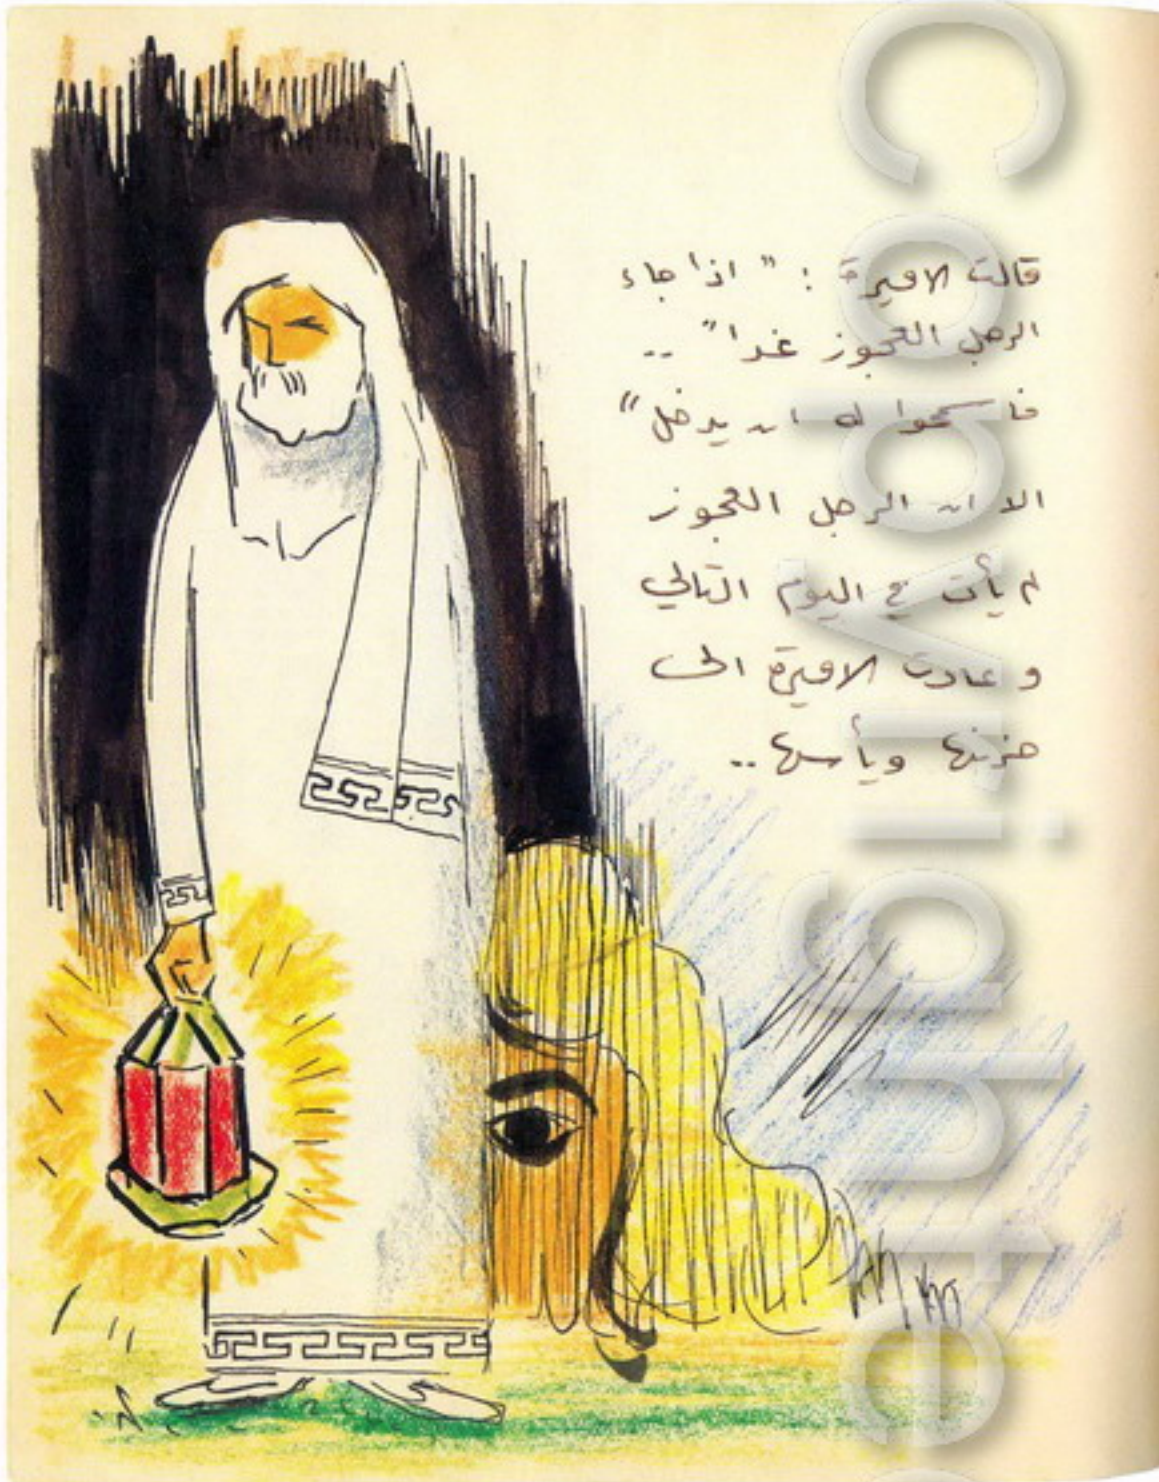 قالت الاميرة : " اذا جاء
الرجل العجوز غدا" ..
فاسمحوا له ان يدخل"
الا ان الرجل العجوز
لم يأت في اليوم التالي
و عادت الاميرة الى
حزنها ويأسها ..
Copyrighte